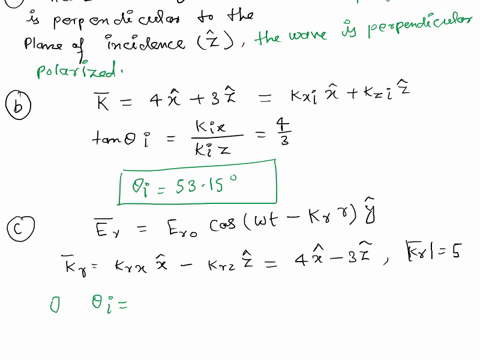 is perpendicular to the
Plane of incidence (ẑ), the wave is perpendicular
polarized.
(b) K̅ = 4x̂ + 3ẑ = Kxi x̂ + Kzi ẑ
tanθi = Kix/Kiz = 4/3
θi = 53.15°
(c) E̅r = Ero cos(ωt − Kr r) ŷ
K̅r = Krx x̂ − Krz ẑ = 4x̂ − 3ẑ, |Kr| = 5
θi =